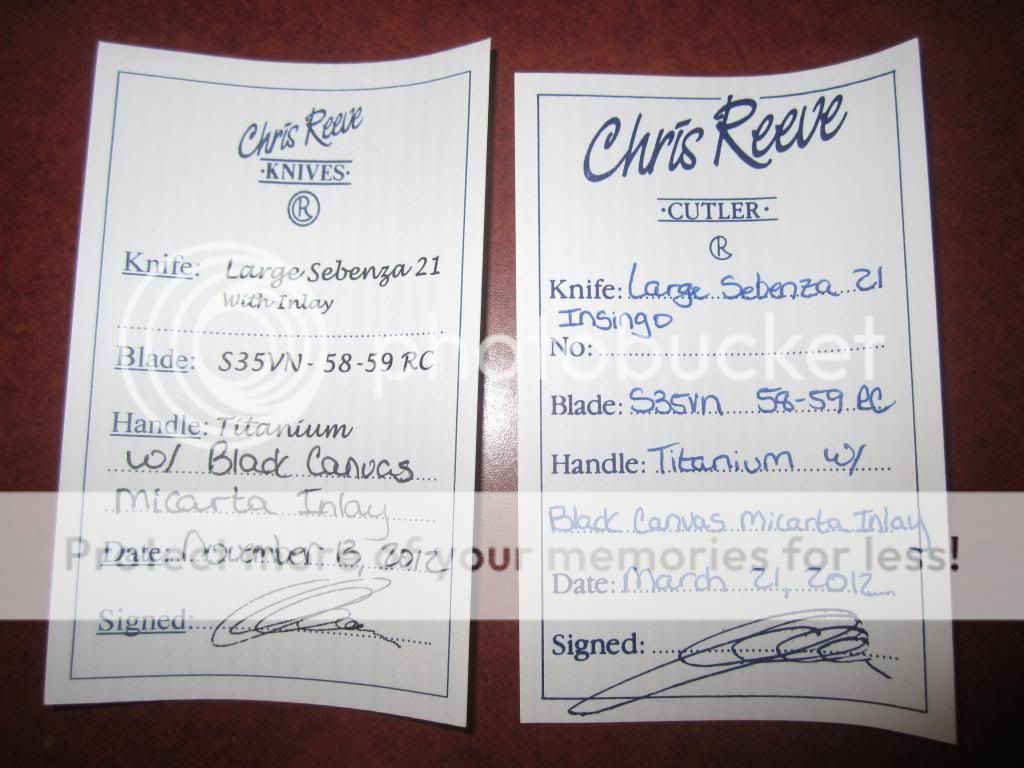 Chris Reeve
·KNIVES·
®
Knife: Large Sebenza 21
With Inlay
Blade: S35VN - 58-59 RC
Handle: Titanium
w/ Black Canvas
Micarta Inlay
Date: November 13, 2012
Signed:
Chris Reeve
·CUTLER·
®
Knife: Large Sebenza 21
Insingo
No:
Blade: S35VN 58-59 RC
Handle: Titanium w/
Black Canvas Micarta Inlay
Date: March 21, 2012
Signed:
photobucket
Protect more of your memories for less!